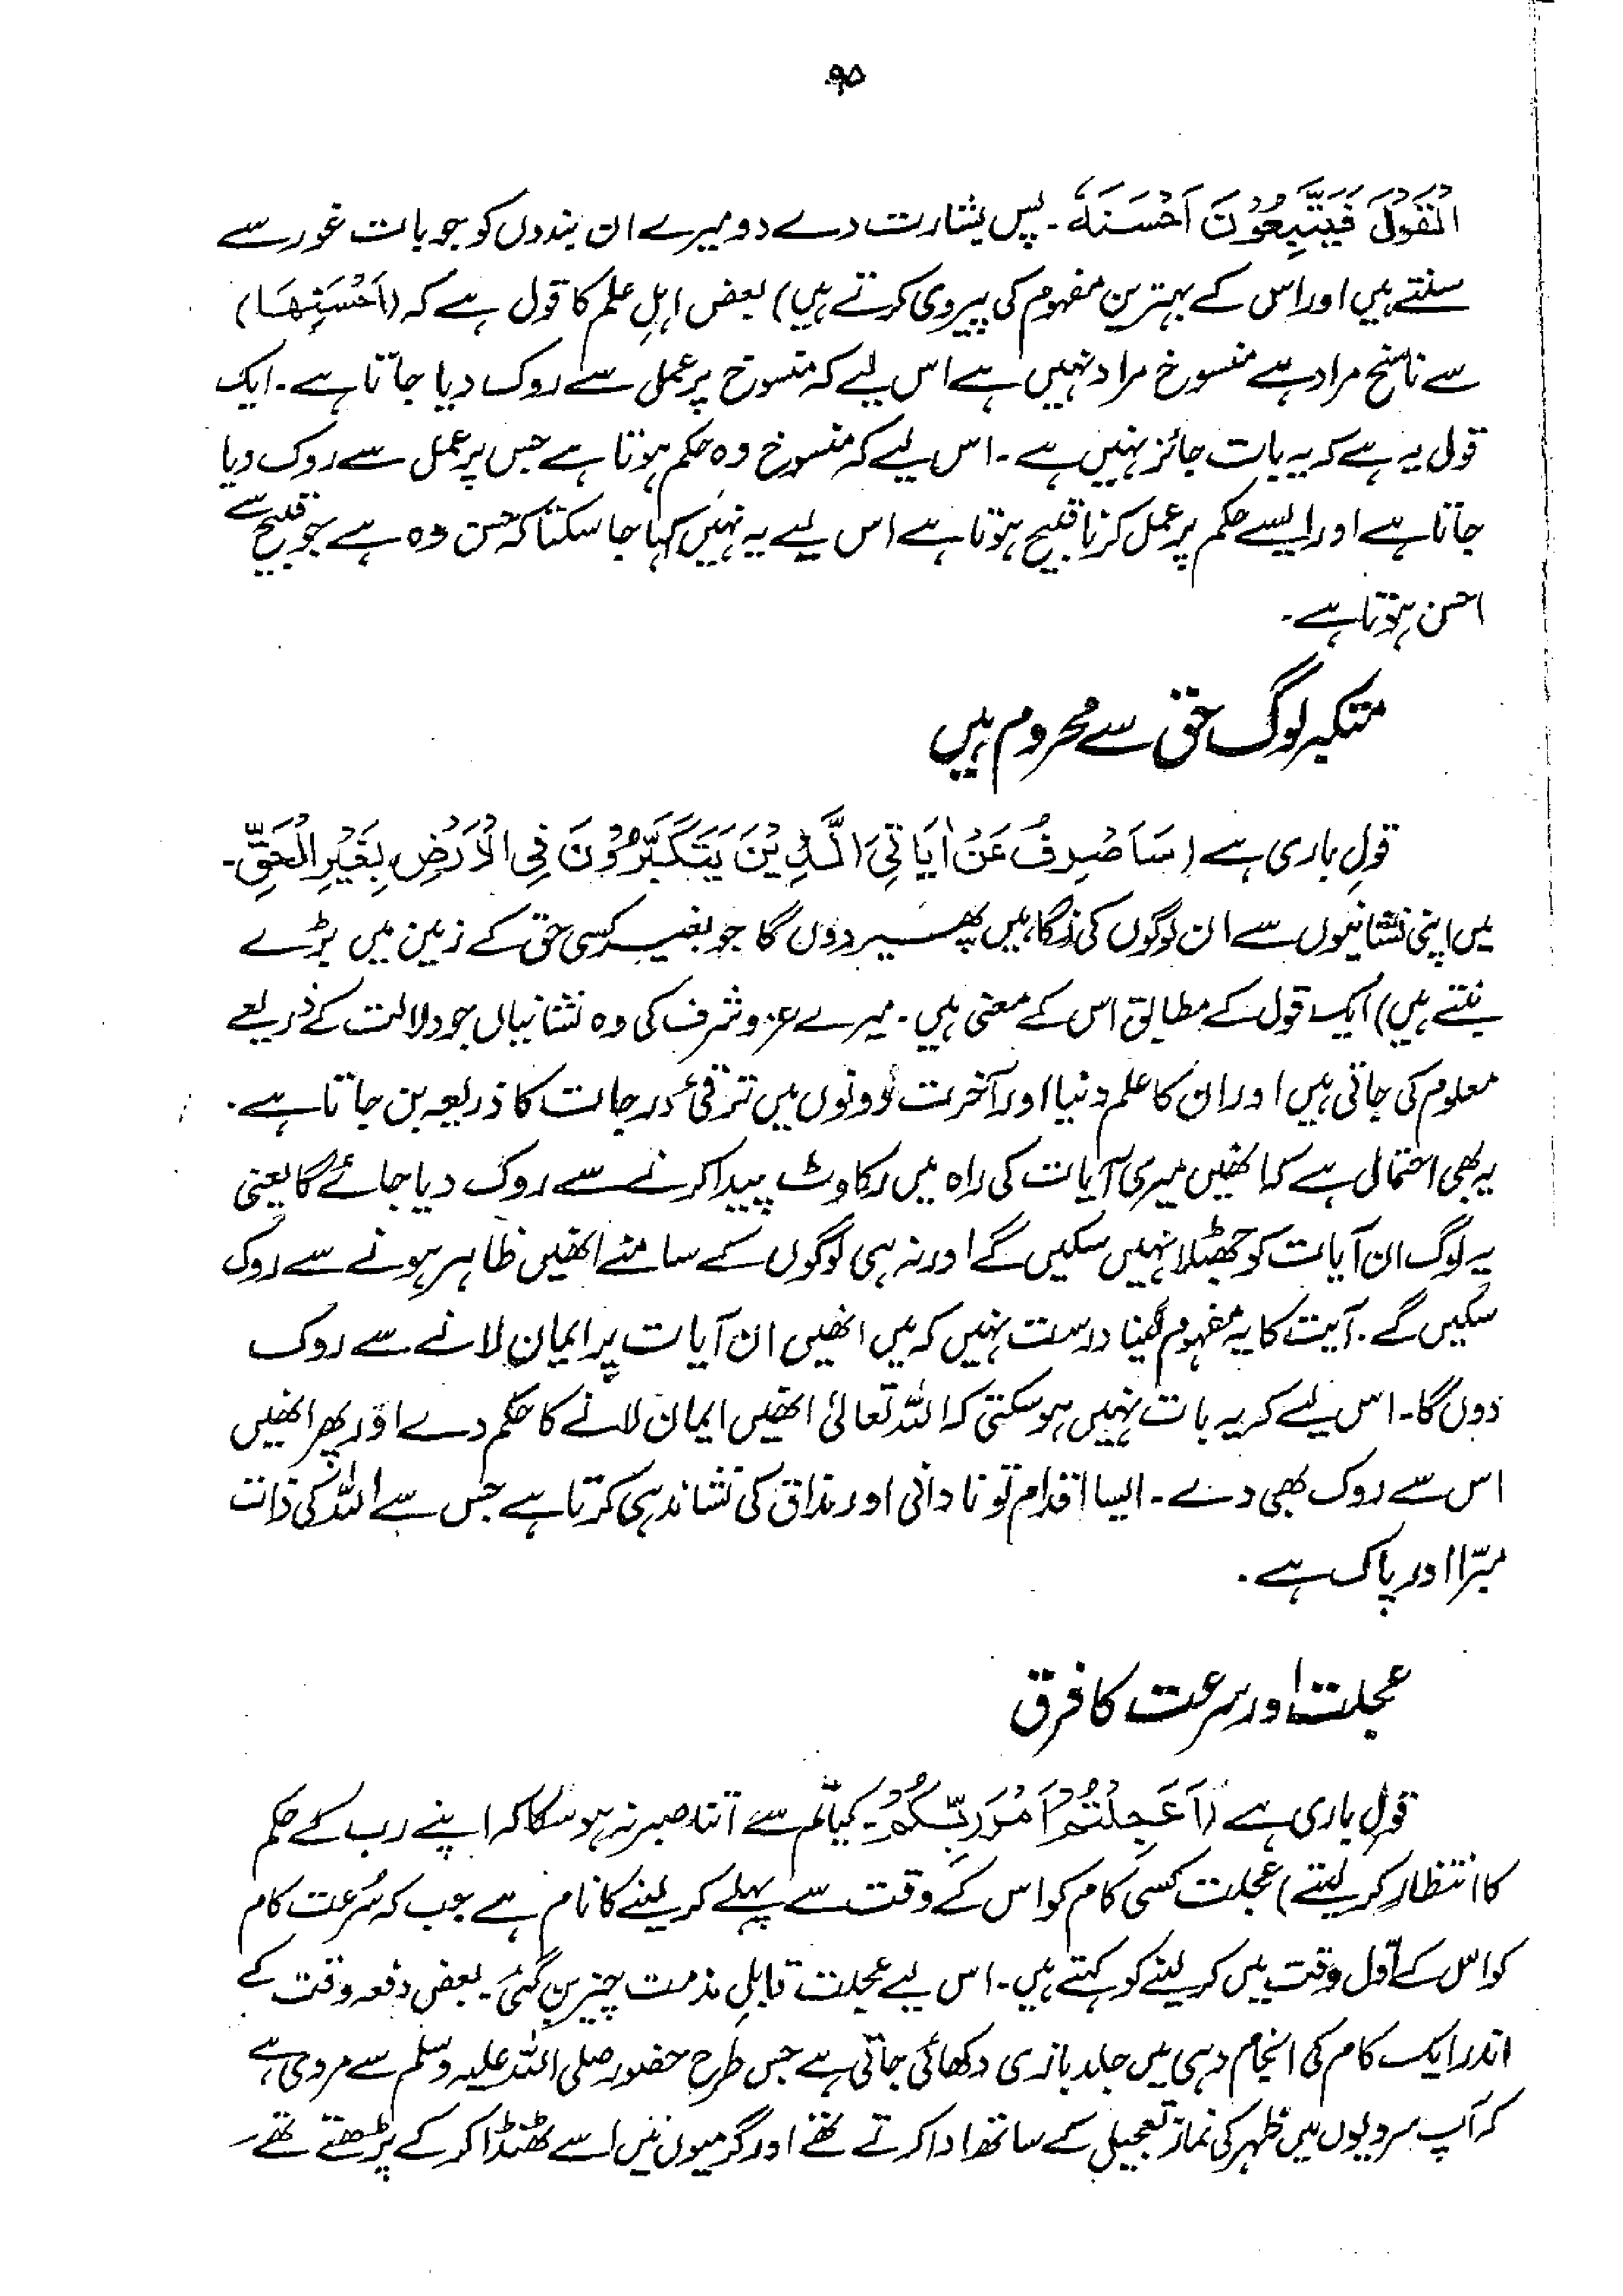 ۹۵
الْقَوْلَ فَيَتَّبِعُوْنَ اَحْسَنَهٗ۔ پس بشارت دے دو میرے ان بندوں کو جو بات غور سے
سنتے ہیں اور اس کے بہترین مفہوم کی پیروی کرتے ہیں) بعض اہلِ علم کا قول ہے کہ (اَحْسَنِهَا)
سے ناسخ مراد ہے منسوخ مراد نہیں ہے اس لیے کہ منسوخ پر عمل سے روک دیا جاتا ہے۔ ایک
قول یہ ہے کہ یہ بات جائز نہیں ہے۔ اس لیے کہ منسوخ وہ حکم ہوتا ہے جس پر عمل سے روک دیا
جاتا ہے اور ایسے حکم پر عمل کرنا قبیح ہوتا ہے اس لیے یہ نہیں کہا جا سکتا کہ حسن وہ ہے جو قبیح سے
احسن ہوتا ہے۔
متکبر لوگ حق سے محروم ہیں
قولِ باری ہے (سَاَصْرِفُ عَنْ اٰيَاتِيَ الَّذِيْنَ يَتَكَبَّرُوْنَ فِي الْاَرْضِ بِغَيْرِ الْحَقِّ۔
میں اپنی نشانیوں سے ان لوگوں کی نگاہیں پھیر دوں گا جو بغیر کسی حق کے زمین میں بڑے
بنتے ہیں) ایک قول کے مطابق اس کے معنی ہیں۔ میرے عز و شرف کی وہ نشانیاں جو دلالت کے ذریعے
معلوم کی جاتی ہیں اور ان کا علم دنیا اور آخرت دونوں میں ترقیٔ درجات کا ذریعہ بن جاتا ہے۔
یہ بھی احتمال ہے کہ انھیں میری آیات کی راہ میں رکاوٹ پیدا کرنے سے روک دیا جائے گا یعنی
یہ لوگ ان آیات کو جھٹلا نہیں سکیں گے اور نہ ہی لوگوں کے سامنے انھیں ظاہر ہونے سے روک
سکیں گے۔ آیت کا یہ مفہوم لینا درست نہیں کہ میں انھیں ان آیات پر ایمان لانے سے روک
دوں گا۔ اس لیے کہ یہ بات نہیں ہو سکتی کہ اللہ تعالیٰ انھیں ایمان لانے کا حکم دے اور پھر انھیں
اس سے روک بھی دے۔ ایسا اقدام تو نادانی اور مذاق کی نشاندہی کرتا ہے جس سے اللہ کی ذات
مبرّا اور پاک ہے۔
عجلت اور سرعت کا فرق
قولِ باری ہے (اَعَجِلْتُمْ اَمْرَ رَبِّكُمْ۔ کیا تم سے اتنا صبر نہ ہو سکا کہ اپنے رب کے حکم
کا انتظار کر لیتے) عجلت کسی کام کو اس کے وقت سے پہلے کر لینے کا نام ہے جب کہ سُرعت کام
کو اس کے اوّل وقت میں کر لینے کو کہتے ہیں۔ اس لیے عجلت قابلِ مذمت چیز بن گئی۔ بعض دفعہ وقت کے
اندر ایک کام کی انجام دہی میں جلد بازی دکھائی جاتی ہے جس طرح حضور صلی اللہ علیہ وسلم سے مروی ہے
کہ آپ سردیوں میں ظہر کی نماز تعجیل کے ساتھ ادا کرتے تھے اور گرمیوں میں اسے ٹھنڈا کر کے پڑھتے تھے۔